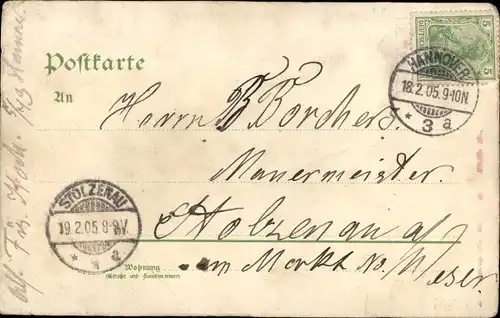 Postkarte
An
Herrn B Borchers
Mauermeister
Stolzenau a/
am Markt No. Weser.
Wohnung
(Straße und Hausnummer)
HANNOVER
18.2.05.9-10N.
* 3 a
STOLZENAU
19.2.05.8-9V.
* a
5
5